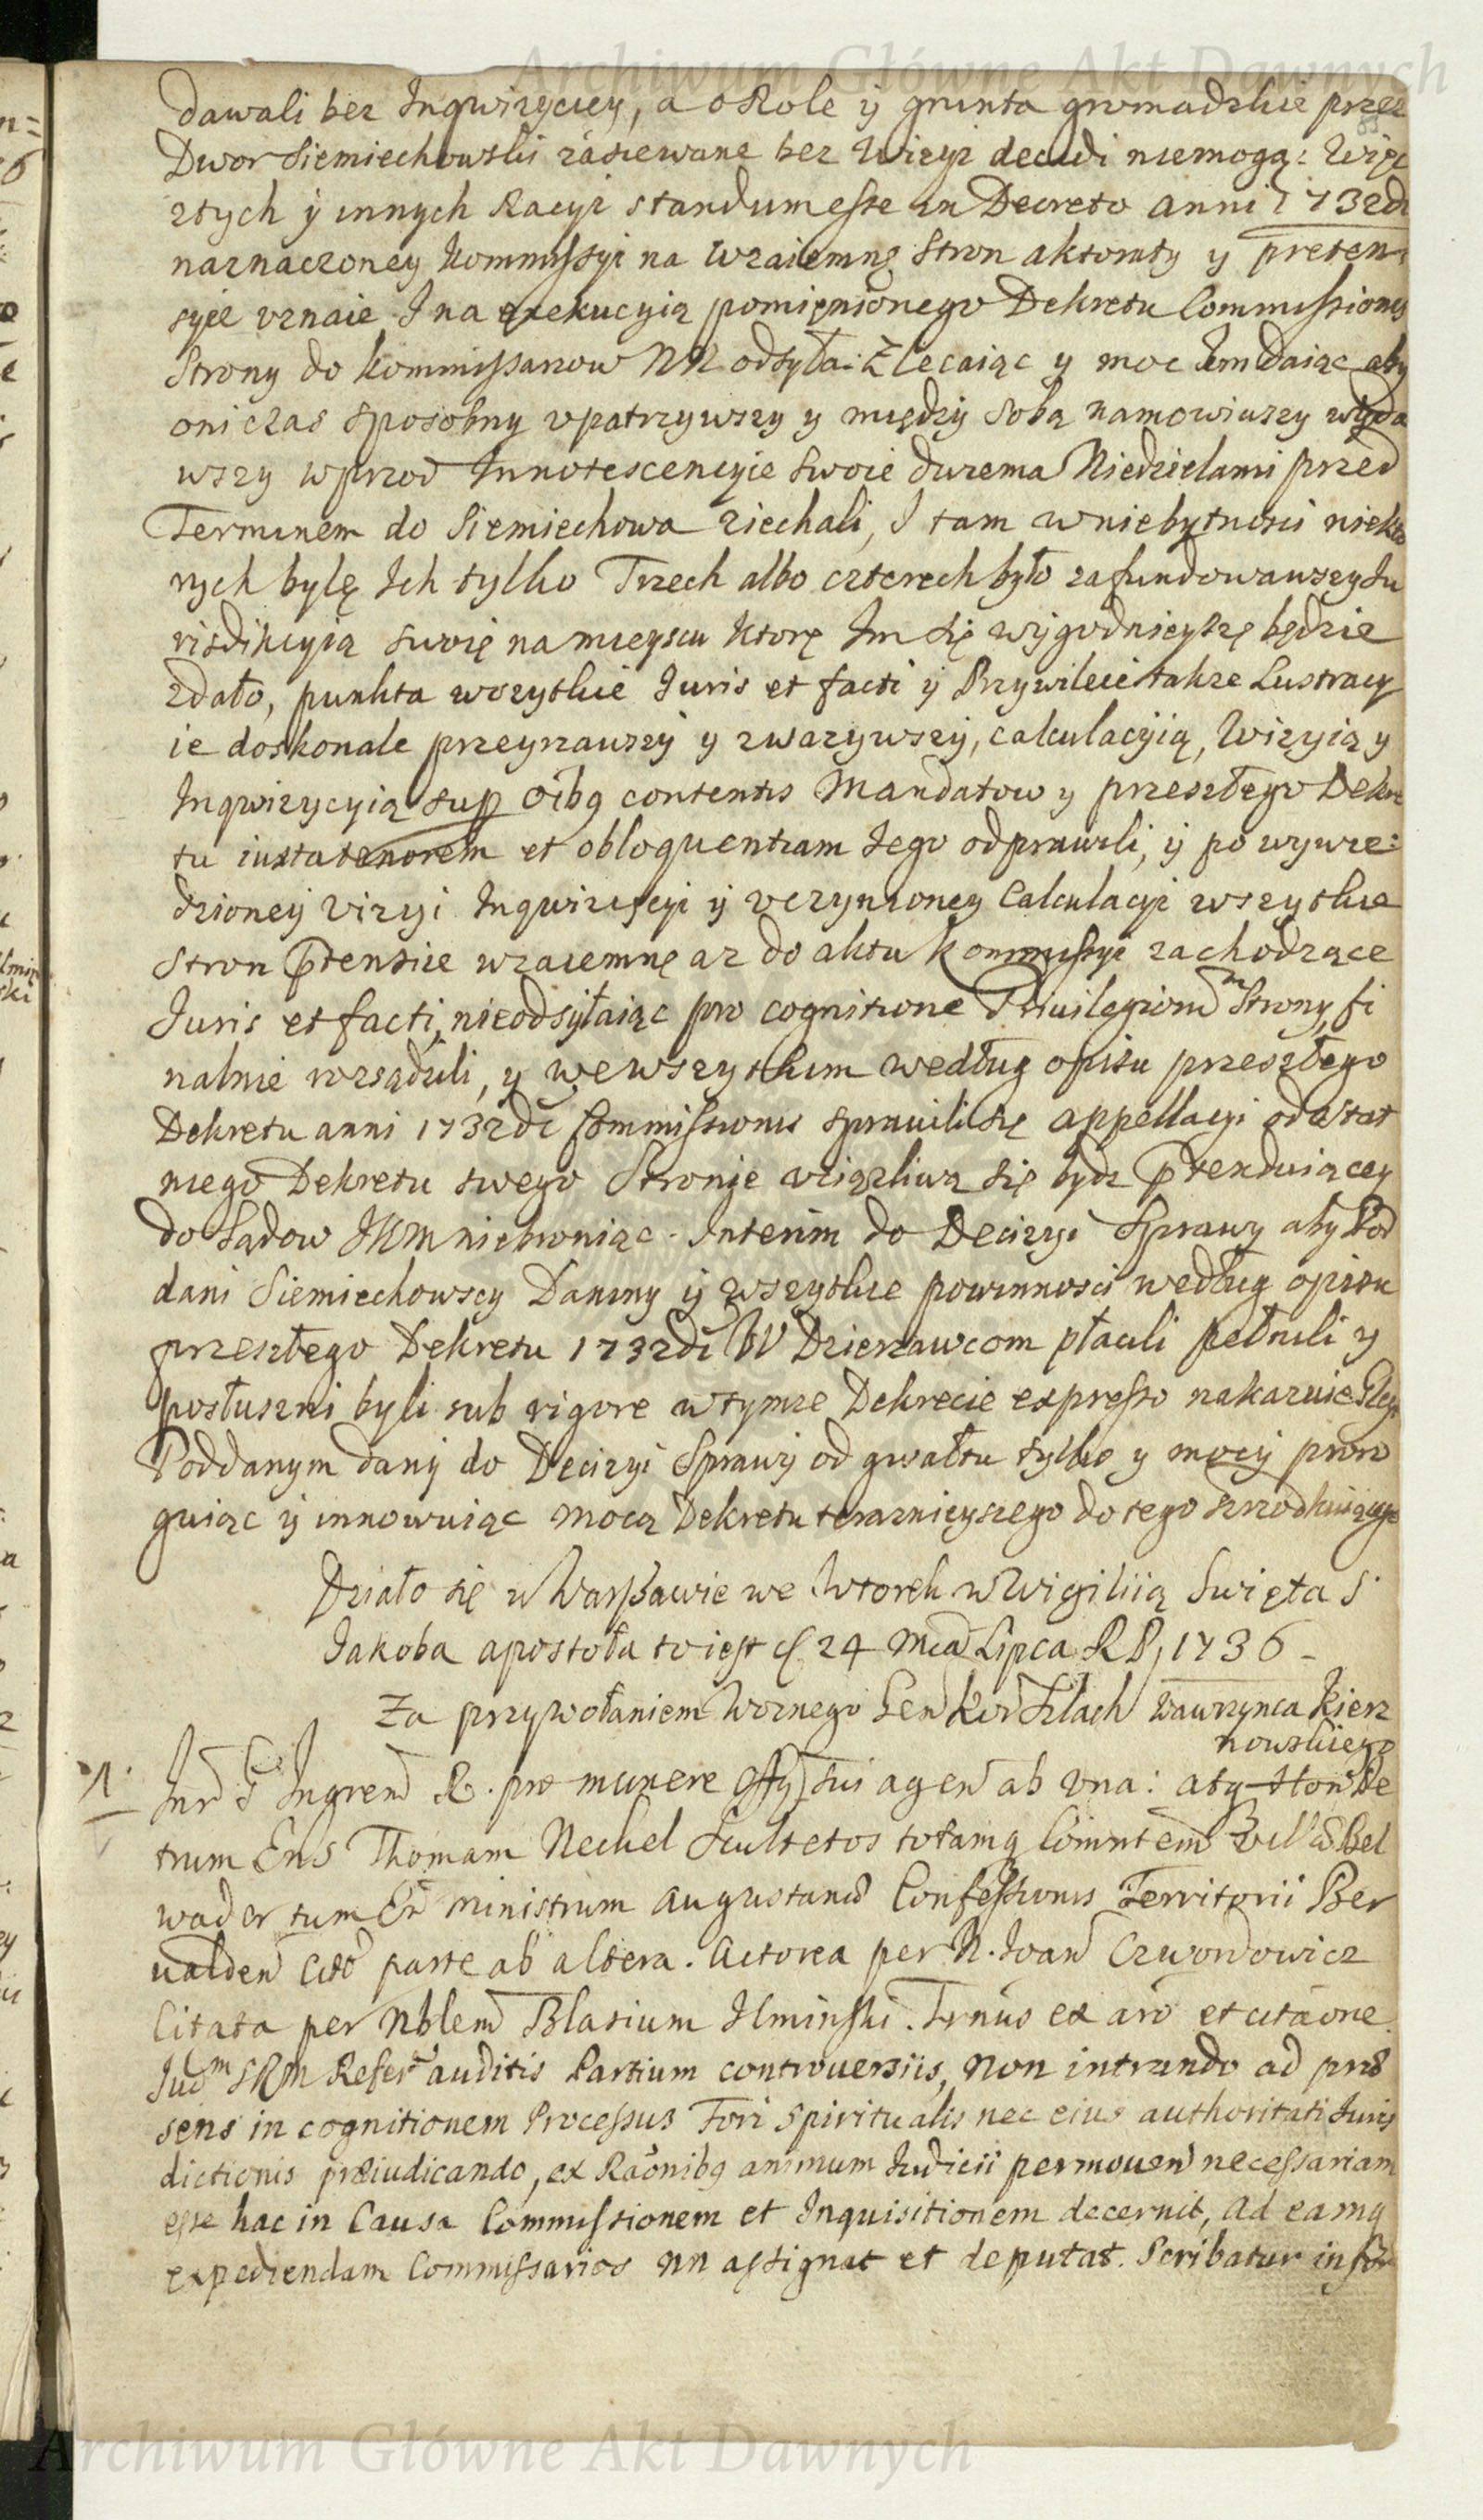 Archiwum Główne Akt Dawnych
dawali bez Inqwizyciey, a o Role y grunta gromadzkie przez
Dwor Siemiechowski zásiewane bez Wizyi decidi niemogą: Więc
ztych ÿ innych Racyi standum esse in Decreto anni 1732di
naznaczoney Kommissyi na wzaiemne Stron aktoraty y preten:
syie uznaie I na exekucyią pomięnionego Dekretu Commissionis
Strony do Kommissarzow NN odsyła: Zlecaiąc y moc Jem daiąc aby
oni czas sposobny upatrzywszy y między sobą namowiwszy wyda
wszy wprzod Innotescencyie swoie dwiema Niedzielami przed
Terminem do Siemiechowa ziechali, I tam wniebytnosci niekto
rych bylę Ich tylko Trzech albo czterech było zafundowawszy Ju
risdikcyią swoię na mieyscu ktorę Im się wÿgodnieyszę będzie
zdało, punkta wszytkie Juris et facti ÿ Przywileie takze Lustracy
ie doskonale przeyrzawszy y zwazywszy, calculacyią, Wizyią y
Inqwizycyią sup oibq contentis Mandatow y przeszłego Dekre
tu iuxta tenorem et obloquentiam Jego odprawili, ÿ po wywie:
dzioneÿ vizyi Inqwizycyi ÿ uczynioney Calculacyi wszytkie
Stron ptensie wzaiemnę az do aktu Kommissyi zachodzące
Juris et facti, nieodsyłaiąc pro cognitione Privilegiorum Strony, fi
nalnie rozsądzili, y wewszytkim według opisu przeszłego
Dekretu anni 1732di Commissionis sprawili się appellacyi od ostat
niego Dekretu swego Stronie uciązliwą się bydz ptenduiącey
do Sądow JKM niebroniąc. Interim do Decizyi Sprawy aby Pod
dani Siemiechowscy Daniny ÿ wszytkie powinnosci według opisu
przeszłego Dekretu 1732di W Dzierzawcom płacili pełnili y
posłuszni byli sub rigore wtymze Dekrecie expresso nakazuie Gleyt
Poddanym dany do Decizyi Sprawy od gwałtu tylko y mocy proro
guiąc ÿ innowuiąc mocą Dekretu teraznieyszego do tego szrodkuiącego
Działo się w Warszawie we Wtorek w Wigiliią Swięta S
Jakoba apostoła to iest d 24 Mca Lipca RP, 1736 –
Za przywołaniem Woznego Gen Kor Szlach Wawrzynca Kierz
nowskiego
1. Ingren R. pro munere Offÿ sui agen ab una: atq Hon Pe
trum Ens Thomam Neckel Scultetos totamq Commtem Bel
wader tum En Ministrum Augustana Confessionis Territorii Ber
walden Citt parte ab altera. Actorea per N. Joan Czwordowicz
Citata per Nblem Blasium Ilminski. Trnus ex aro et citaone
Judm SRM Refer auditis Partium controversiis, non intrando ad præ
sens in cognitionem Processus Fori Spiritualis nec eius authoritati Juris
dictionis præiudicando, ex Raonibq animum Judicii permoven necessariam
esse hac in Causa Commissionem et Inquisitionem decernit, Ad eamq
expediendam Commissarios NN assignat et deputat. Scribatur in for
Archiwum Główne Akt Dawnych